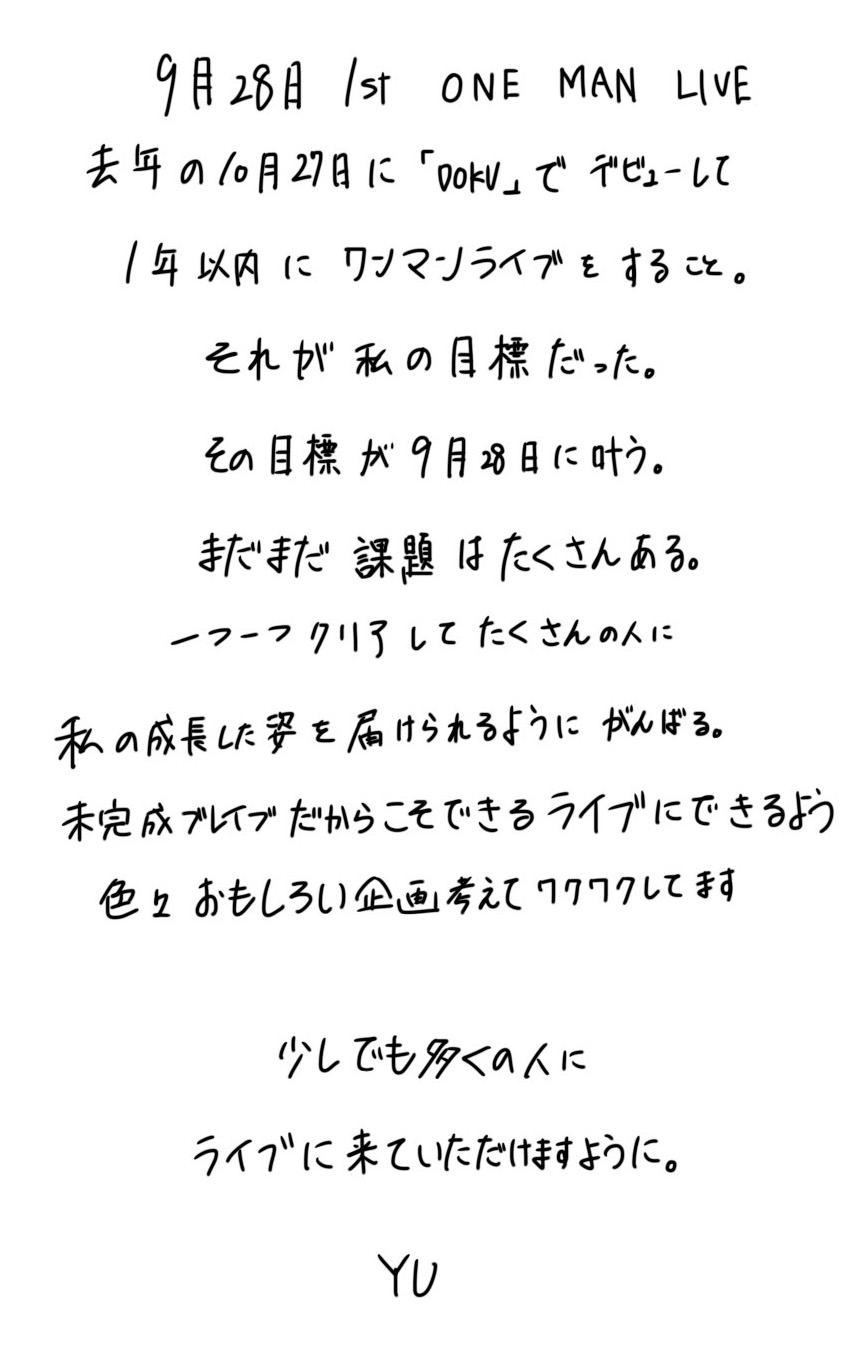 9月28日 1st ONE MAN LIVE
去年の10月27日に「DOKU」でデビューして
1年以内にワンマンライブをすること。
それが私の目標だった。
その目標が9月28日に叶う。
まだまだ課題はたくさんある。
一つ一つクリアしてたくさんの人に
私の成長した姿を届けられるようにがんばる。
未完成ブレイブだからこそできるライブにできるよう
色々おもしろい企画考えてワクワクしてます
少しでも多くの人に
ライブに来ていただけますように。
YU